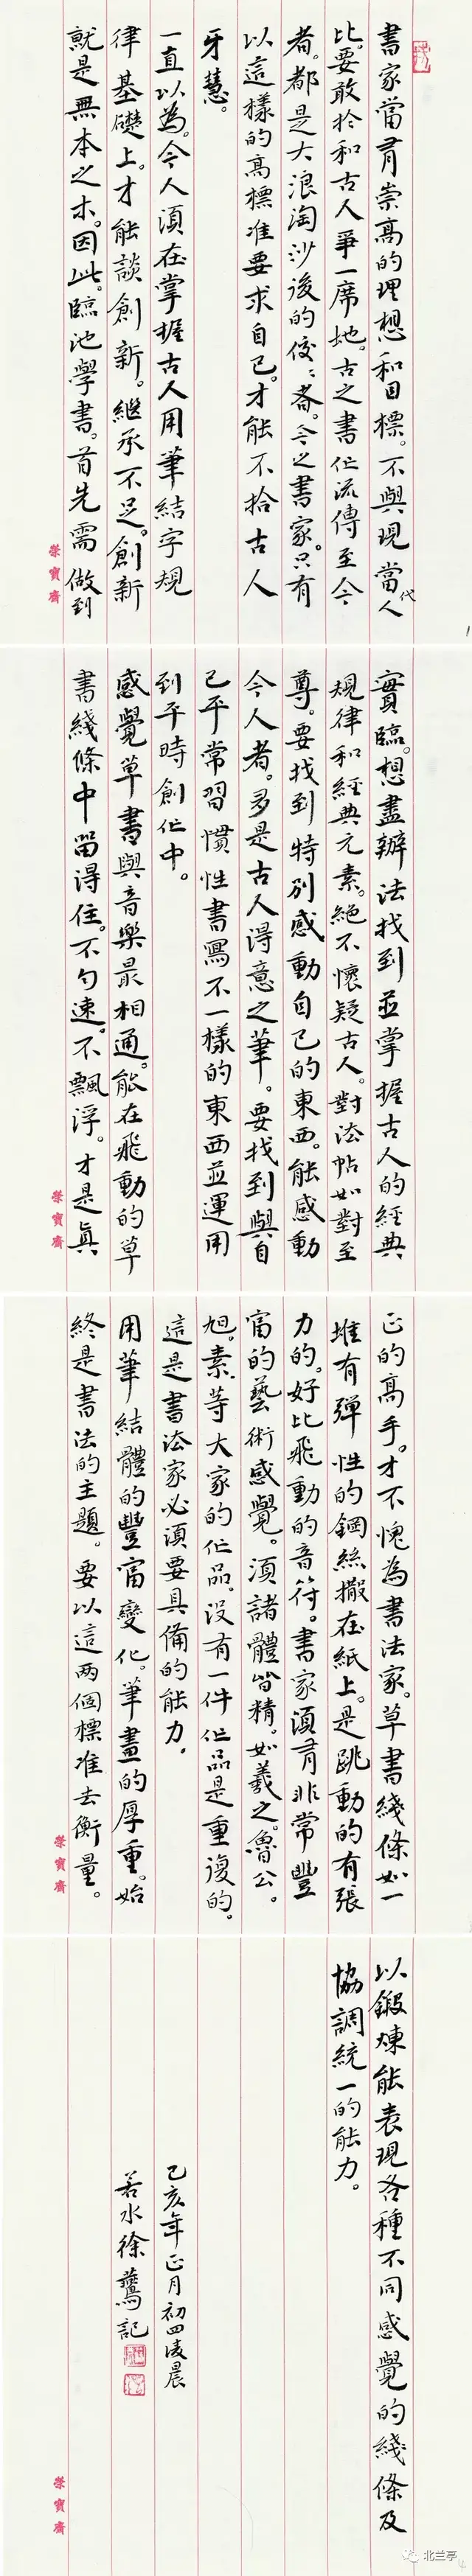 書家當有崇高的理想和目標。不與現當代人
比。要敢於和古人爭一席地。古之書作流傳至今
者。都是大浪淘沙後的佼佼者。今之書家。只有
以這樣的高標准要求自己。才能不拾古人
牙慧。
一直以為。今人須在掌握古人用筆結字規
律基礎上。才能談創新。繼承不足。創新
就是無本之木。因此。臨池學書。首先需做到
榮寶齋
實臨。想盡辦法找到並掌握古人的經典
規律和經典元素。絕不懷疑古人。對法帖如對至
尊。要找到特別感動自己的東西。能感動
今人者。多是古人得意之筆。要找到與自
己平常習慣性書寫不一樣的東西並運用
到平時創作中。
感覺草書與音樂最相通。能在飛動的草
書綫條中留得住。不勻速。不飄浮。才是真
榮寶齋
正的高手。才不愧為書法家。草書綫條如一
堆有彈性的鋼絲撒在紙上。是跳動的有張
力的。好比飛動的音符。書家須有非常豐
富的藝術感覺。須諸體皆精。如羲之。魯公。
旭。素。等大家的作品。没有一件作品是重復的。
這是書法家必須要具備的能力。
用筆結體的豐富變化。筆畫的厚重。始
終是書法的主題。要以這兩個標准去衡量。
榮寶齋
以鍛煉能表現各種不同感覺的綫條及
協調統一的能力。
己亥年正月初四凌晨
若水徐驚記
榮寶齋
北兰亭